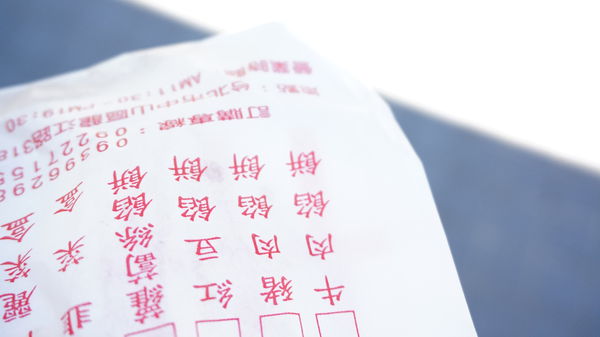 牛肉餡餅
豬肉餡餅
紅豆餡餅
蘿蔔絲餡餅
韭菜盒
麗菜盒
訂購專線：09227155
09396298
地點：台北市中山區龍江路318
營業時間 AM11:30~PM19:30